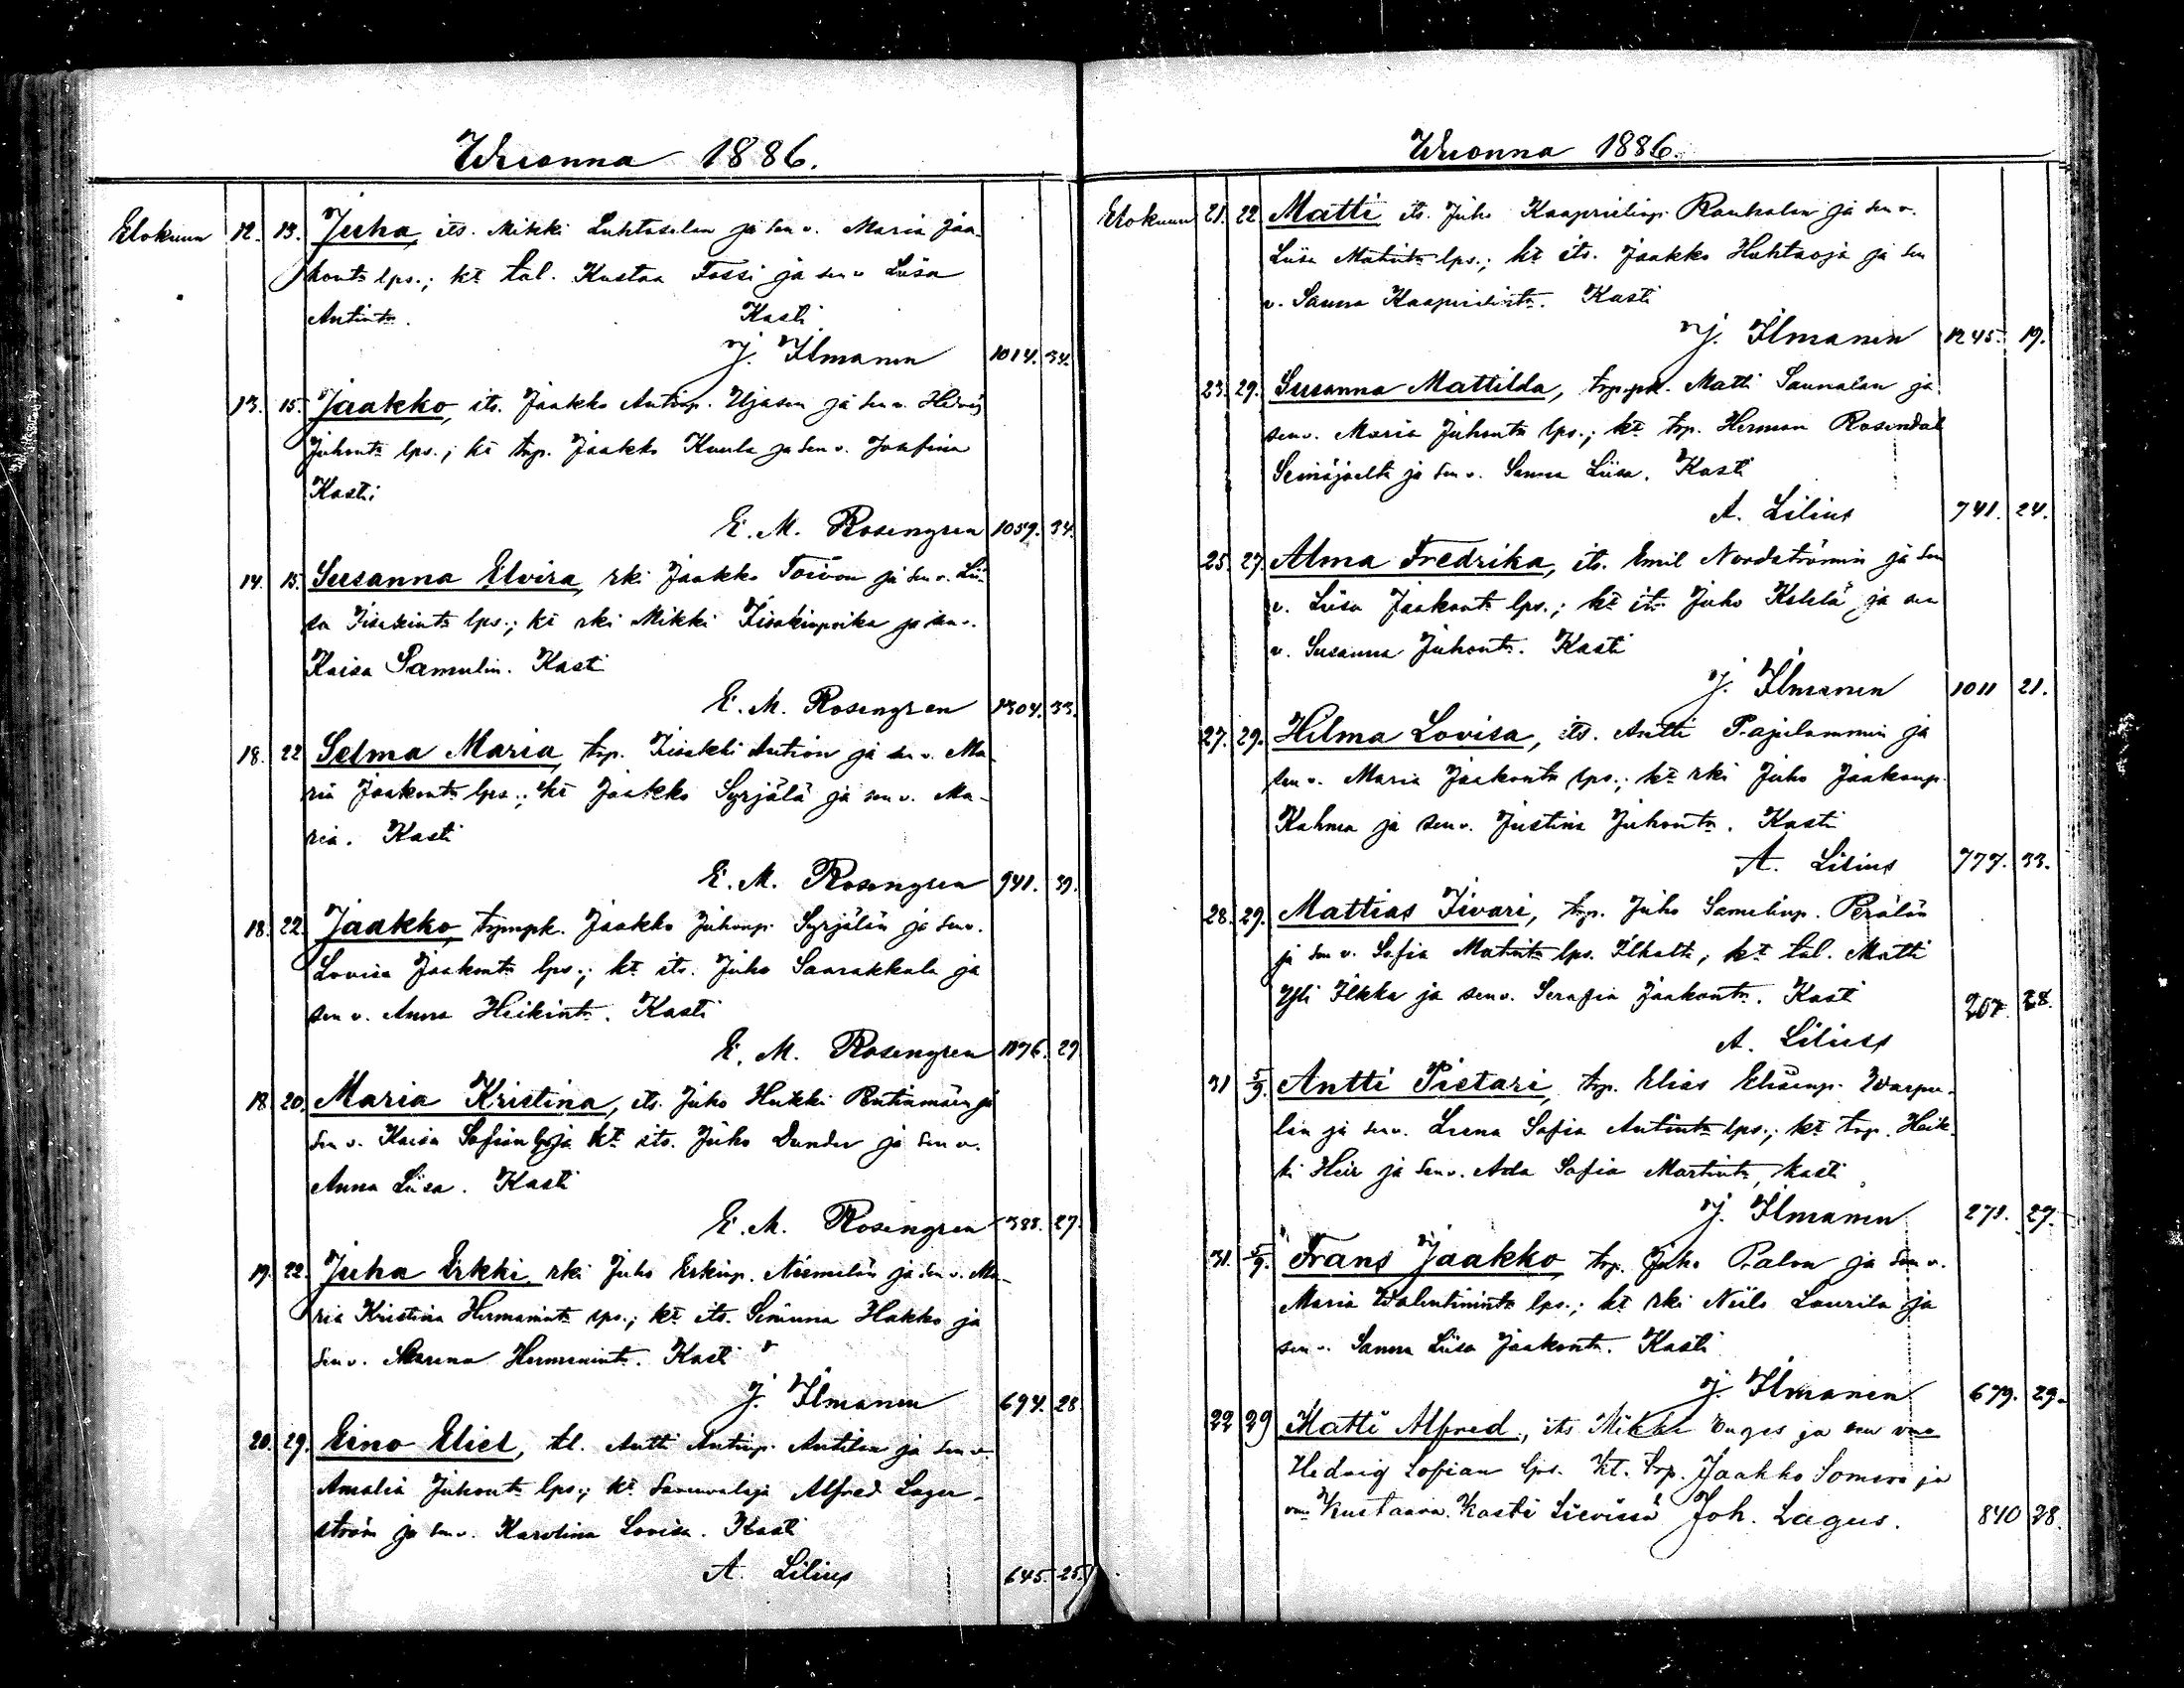 Wuonna 1886.
Elokuun 12. 13. Juha, its. Mikki Luhtasalan ja sen v. Maria Jaa-
konts lps.; kt tal. Kustaa Fossi ja sen v Liisa
Antints. Kasti
J. Ilmanen 1014. 34.
13. 15. Jaakko, its. Jaakko Antinp. Ujasen ja sen v. Hedvig
Juhonts lps.; kt trp. Jaakko Kuula ja sen v. Josefina
Kasti
E. M. Rosengren 1059. 34.
14. 15. Susanna Elvira, rki Jaakko Toivon ja sen v. Lii-
sa Iisakints lps.; kt rki Mikki Iisakinpoika ja sen v.
Kaisa Samulin. Kasti
E. M. Rosengren 1304. 33.
18. 22 Selma Maria, trp. Iisakki Antion ja sen v. Ma-
ria Jaakonts lps.; kt Jaakko Syrjälä ja sen v. Ma-
ria. Kasti
E. M. Rosengren 941. 39.
18. 22. Jaakko, Jaakko Juhonp. Syrjälän ja sen v.
Lovisa Jaakonts lps.; kt its. Juho Saarakkala ja
sen v. Anna Heikints. Kasti
E. M. Rosengren 1076. 29
18. 20. Maria Kristina, its. Juho Hukki ja
sen v. Kaisa Sofian lps ja kt its. Juho Dunder ja sen v.
Anna Liisa. Kasti
E. M. Rosengren 388. 27.
19. 22. Juha Erkki, rki Juho Erkinp. Niemelän ja sen v. Ma-
ria Kristina Hermanints lps.; kt its. Simuna Hakko ja
sen v. Hermanints. Kasti
J. Ilmanen 694. 28
20. 29. Eino Eliel, tl. Antti Antinp. Antilan ja sen v.
Amalia Juhonts lps.; kt Alfred Lager-
ström ja sen v. Karolina Lovisa. Kasti
A. Lilius 645. 25.
Wuonna 1886.
Elokuun 21. 22 Matti its. Juho Kaaprielinp. Rauhalan ja sen v.
Liisa Matints lps.; kt its. Jaakko Huhtaoja ja sen
v. Sanna Kaaprielints. Kasti
J. Ilmanen 1245. 19.
23. 29. Susanna Mattilda, Matti Saunalan ja
sen v. Maria Juhonts lps.; kt trp. Herman Rosendal
Seinäjoelta ja sen v. Sanna Liisa. Kasti
A. Lilius 741. 24.
25. 27. Alma Fredrika, its. Emil Nordströmin ja sen
v. Liisa Jaakonts lps.; kt its. Juho Kehlä ja sen
v. Susanna Juhonts. Kasti
J. Ilmanen 1011 21.
27. 29. Hilma Lovisa, its. Antti Pajulammin ja
sen v. Maria Jaakonts lps.; kt rki Juho Jaakonp.
Kahma ja sen v. Justina Juhonts. Kasti
A. Lilius 777. 33.
28. 29. Mattias Iivari, trp. Juho Samelinp. Perälän
ja sen v. Sofia Matints lps. Ilkalta; kt tal. Matti
Yli Ilkka ja sen v. Serafia Jaakonts. Kasti 207. 28.
A. Lilius
31 5/9. Antti Pietari, trp. Elias Eliänp. Warpu-
lan ja sen v. Leena Sofia Antints lps.; kt trp. Heik-
ki Heir ja sen v. Ada Sofia Martints, kasti
J. Ilmanen 278. 27.
31. 5/9. Frans Jaakko, trp. Juho Palon ja sen v.
Maria Walentinints lps.; kt rki Niilo Laurila ja
sen v. Sanna Liisa Jaakonts. Kasti
J. Ilmanen 679. 29.
22 29 Matti Alfred, its Mikki Enges ja sen vmo
Hedvig Sofian lps. kt. trp. Jaakko Somero ja
vmo Kustaava. Kasti Sievissä Joh. Lagus. 840 28.